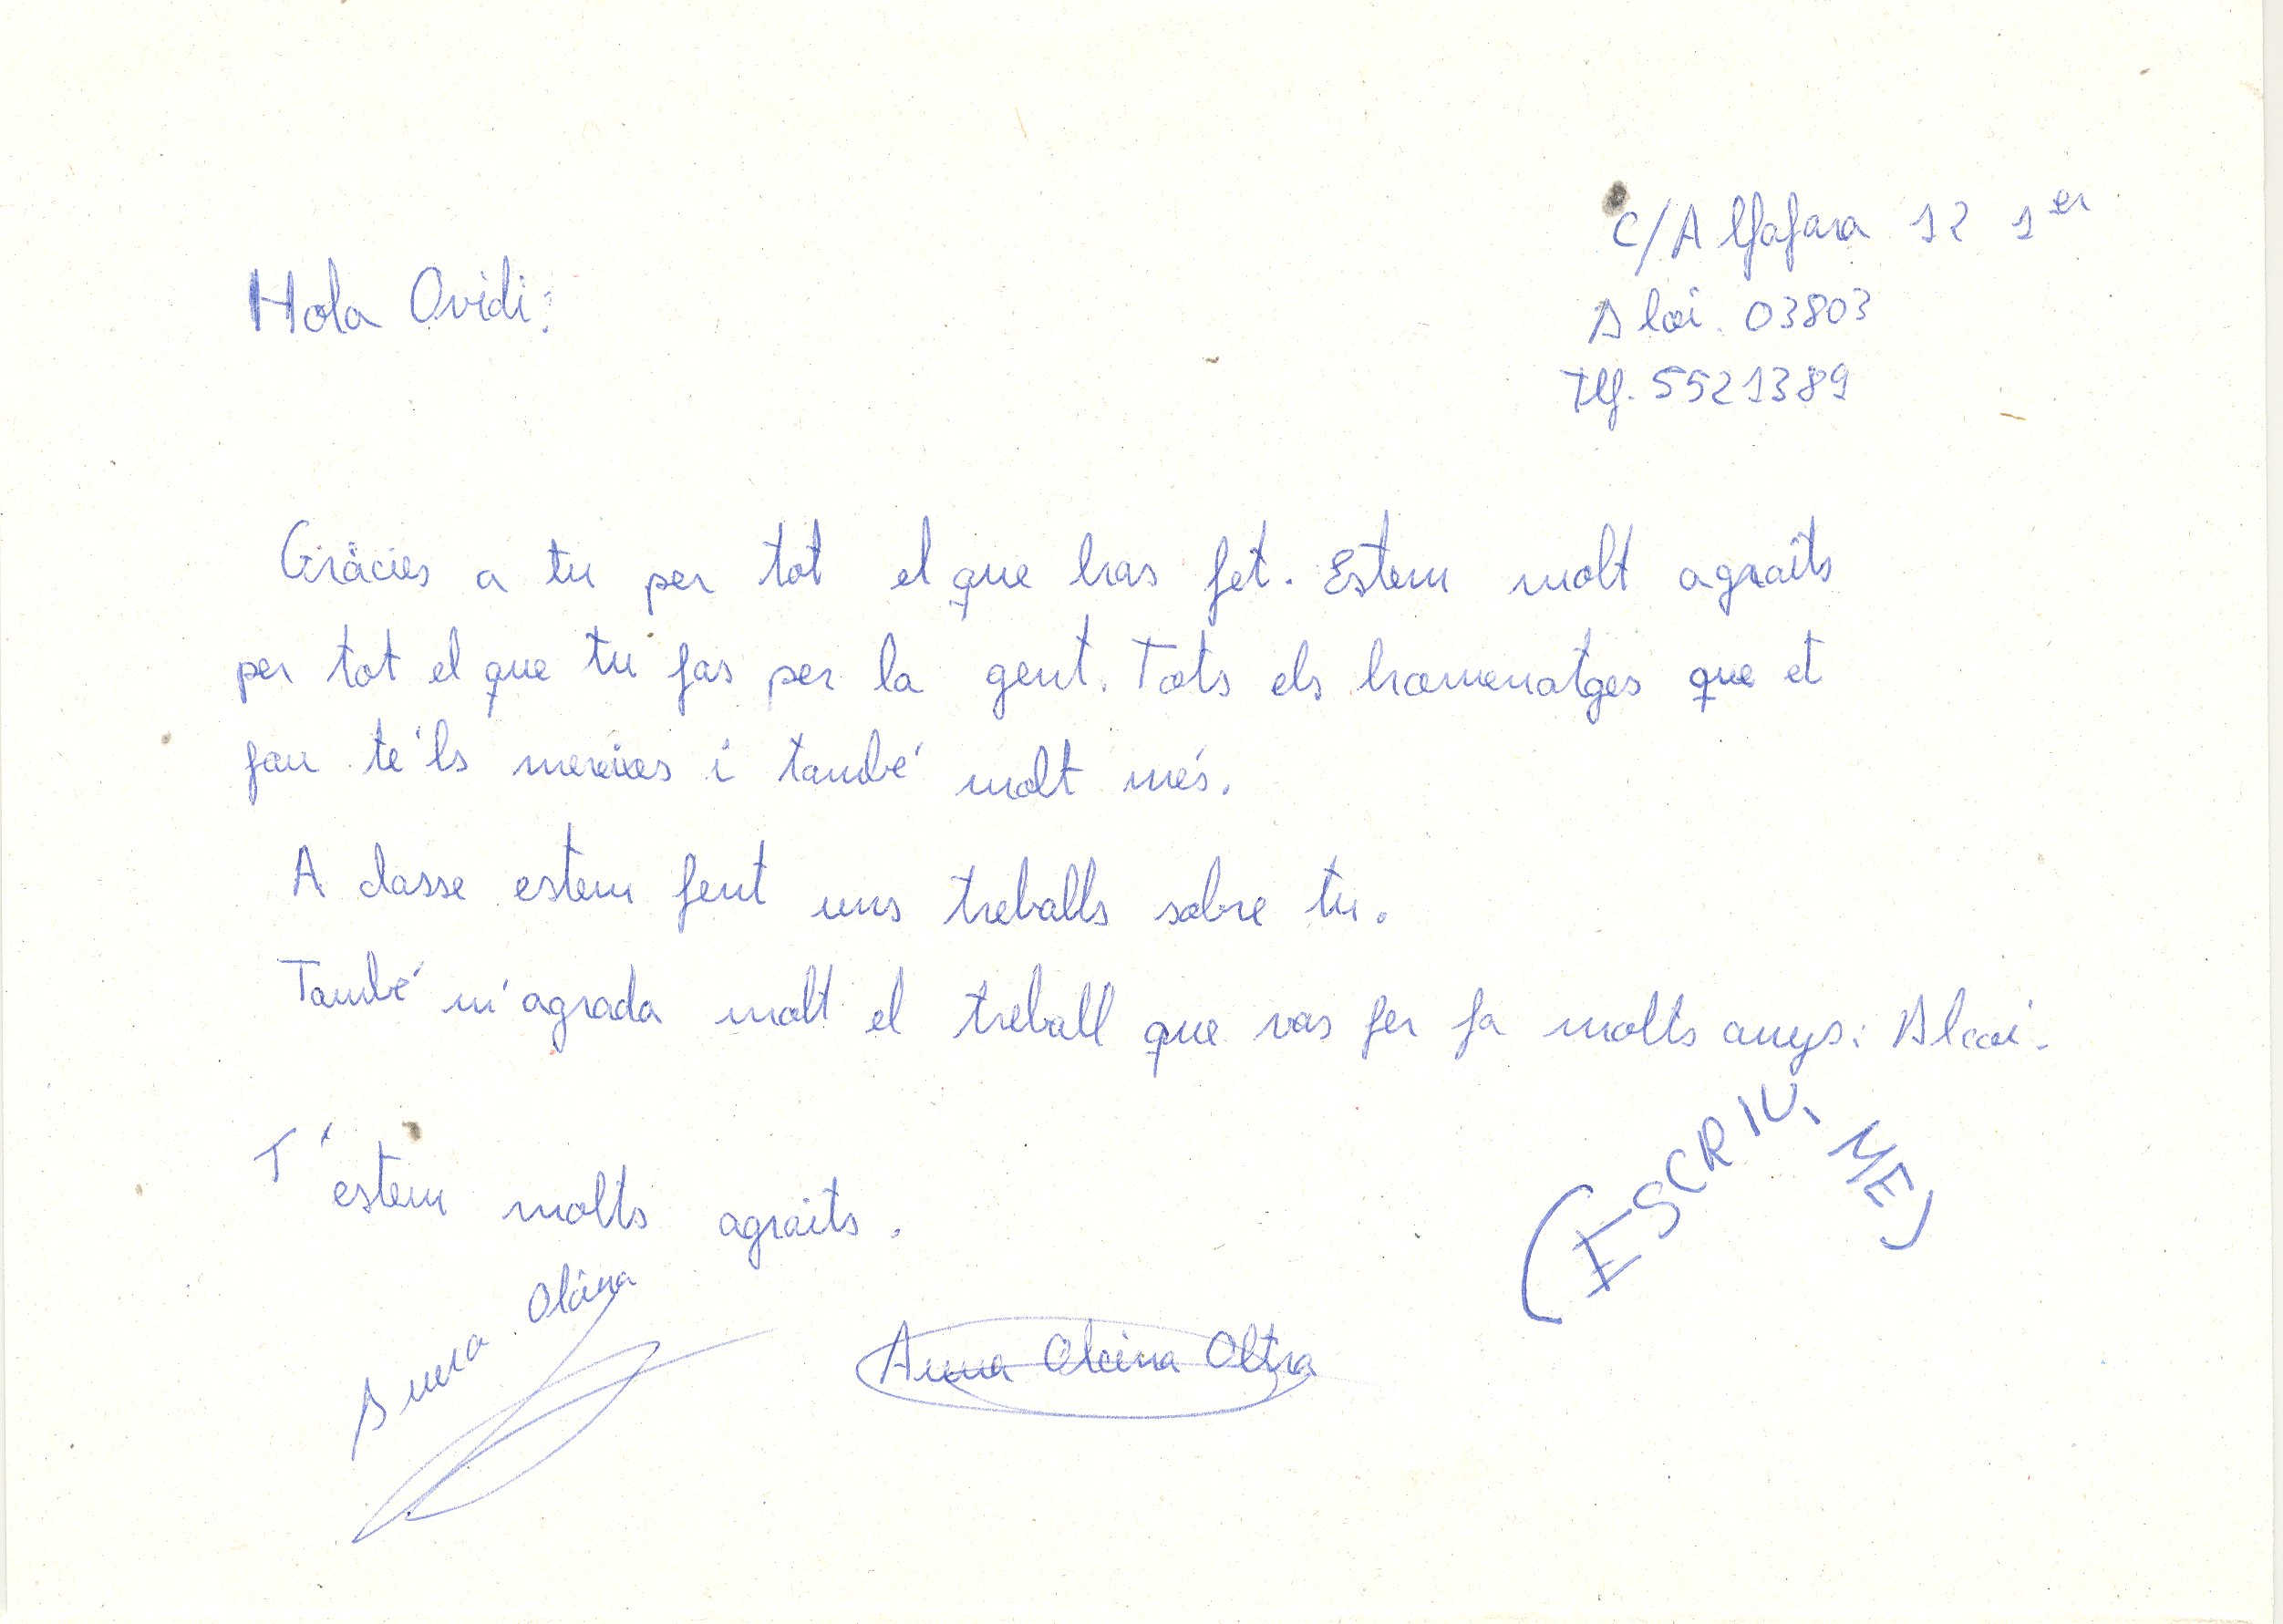 C/Alfafara 12 1er
Hola Ovidi:
Alcoi. 03803
Tlf. 5521389
Gràcies a tu per tot el que has fet. Estem molt agraïts
per tot el que tu fas per la gent. Tots els homenatges que et
fan te'ls mereixes i també molt més.
A classe estem fent uns treballs sobre tu.
També m'agrada molt el treball que vas fer fa molts anys: Alcoi.
T'estem molts agraits.
(ESCRIU, ME)
Anna Olcina
Anna Olcina Oltra